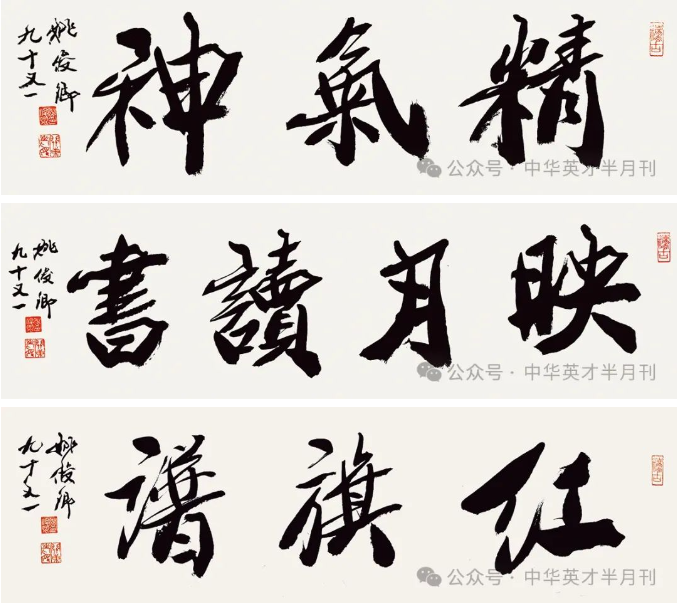 精氣神
姚俊卿
九十又一
公众号·中华英才半月刊
映月讀書
姚俊卿
九十又一
公众号·中华英才半月刊
红旗譜
姚俊卿
九十又一
公众号·中华英才半月刊